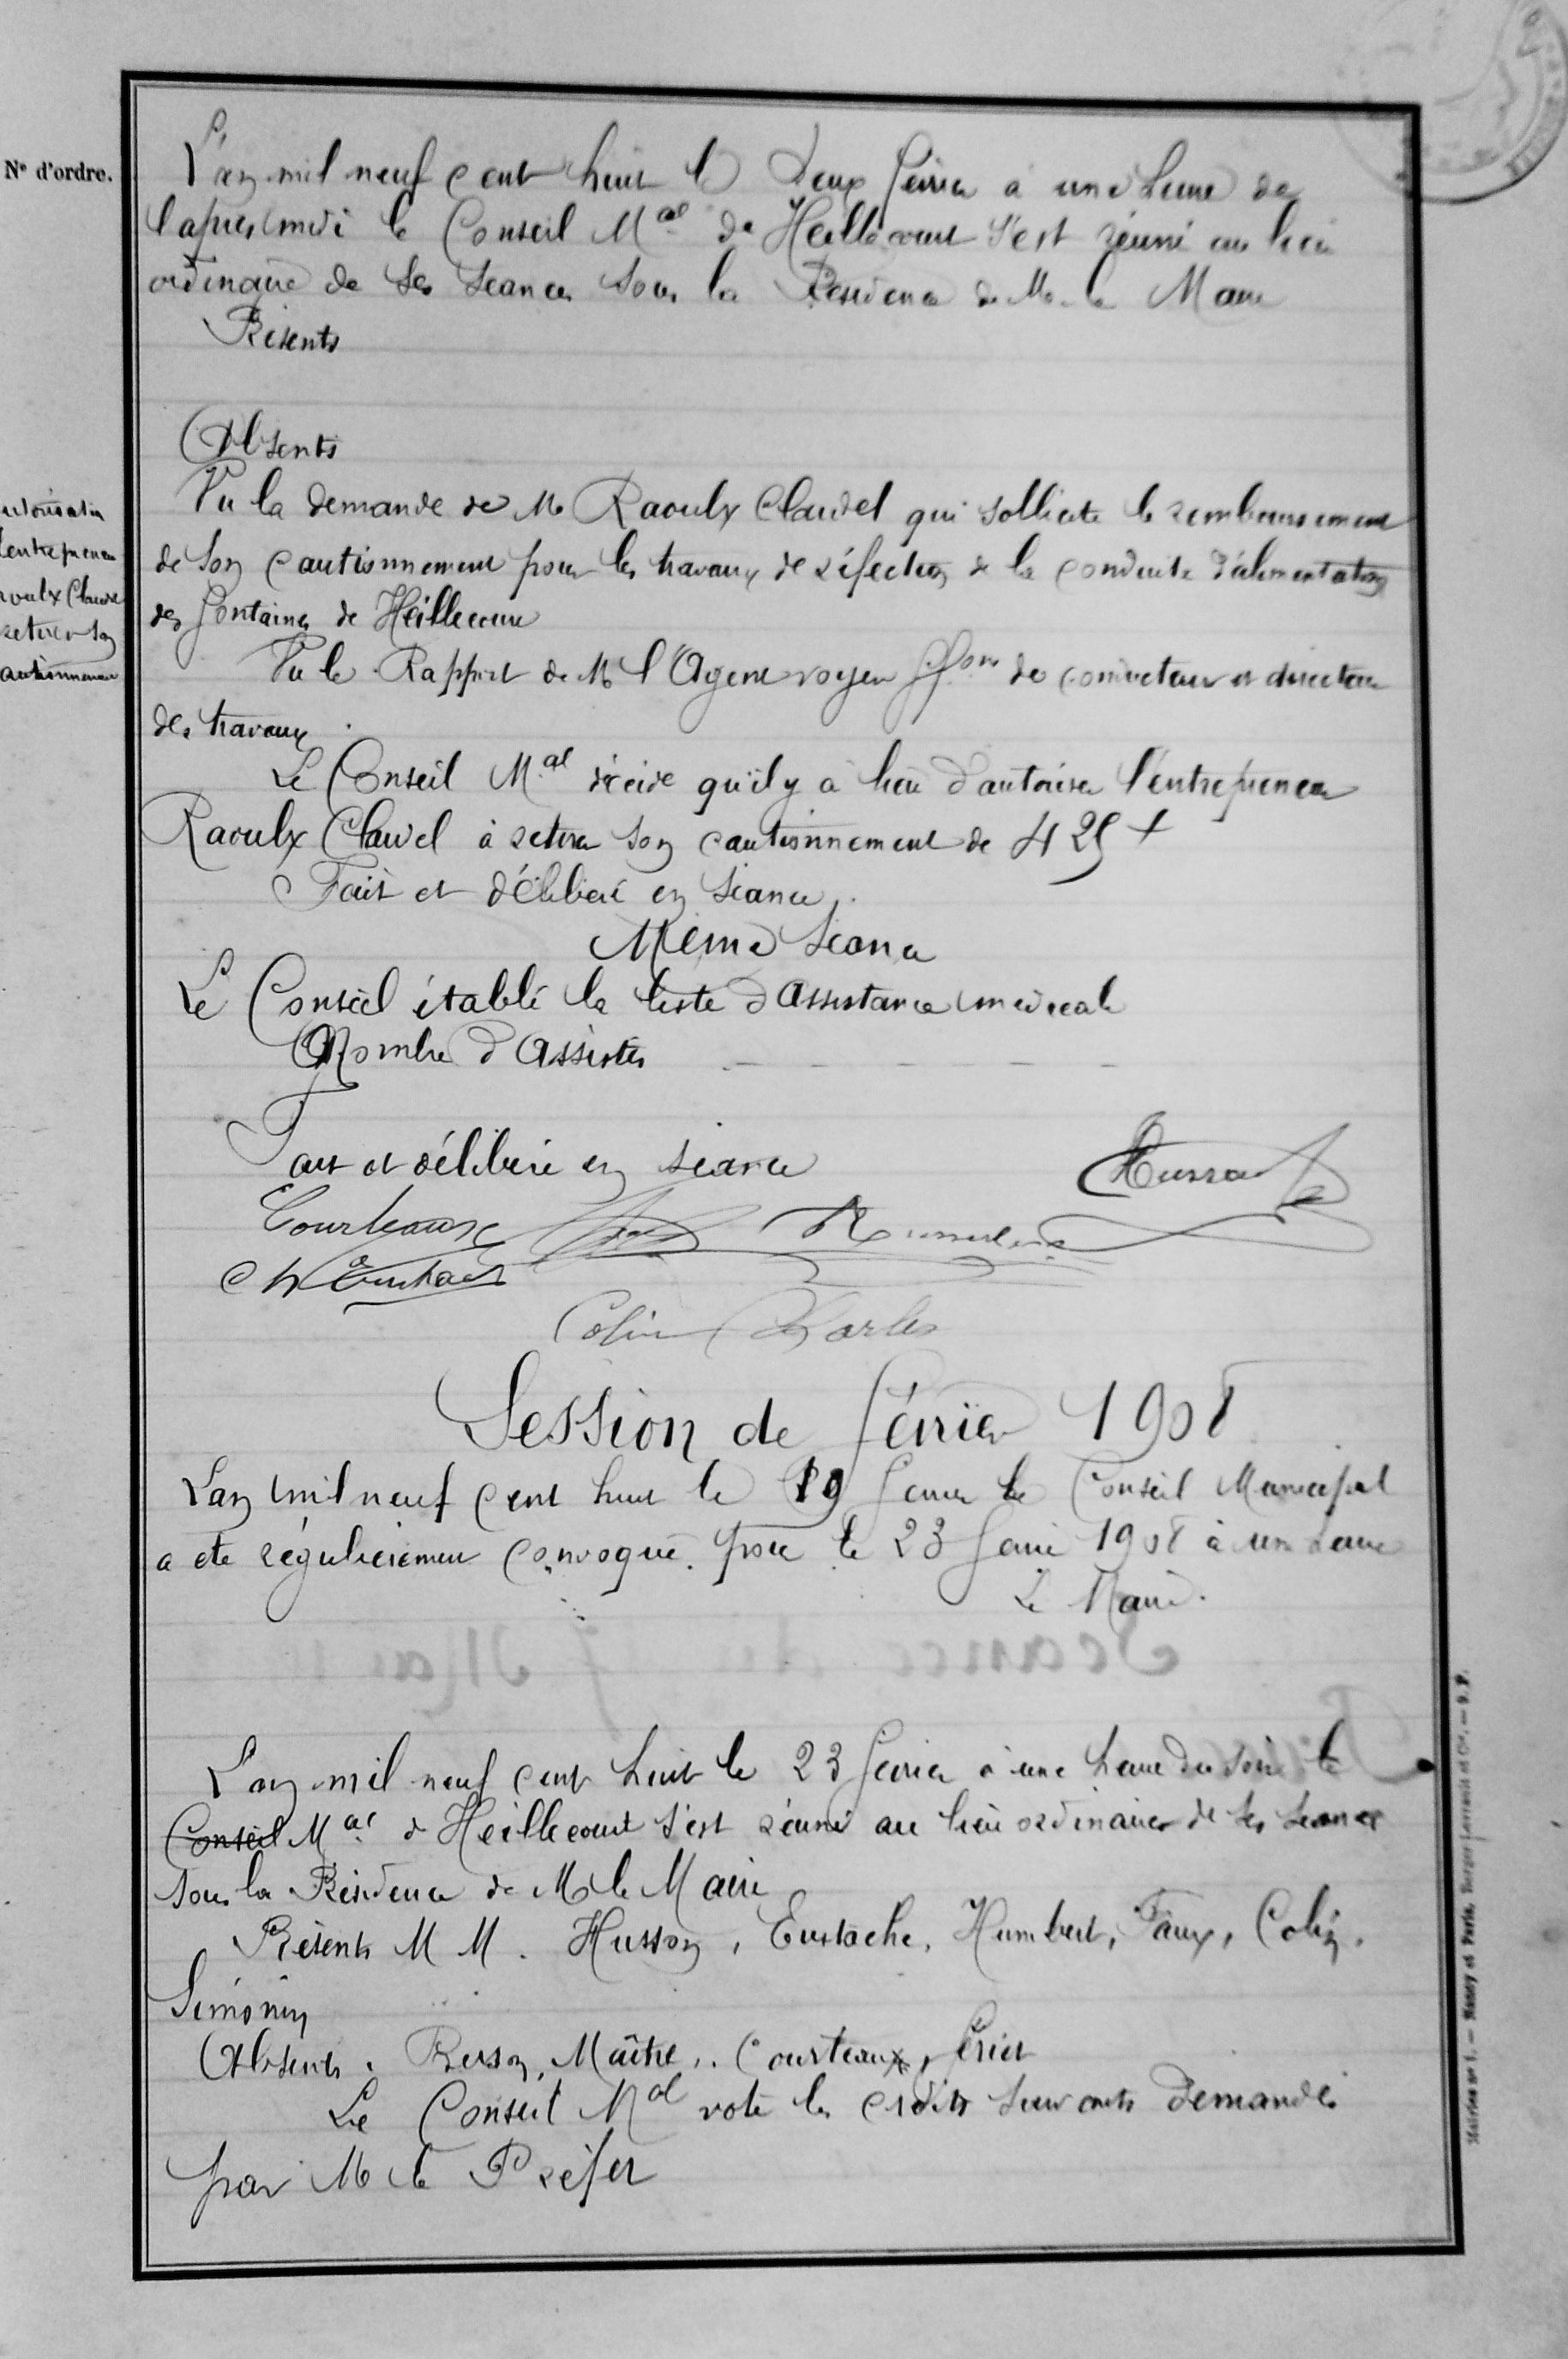 N° d'ordre.
L'an mil neuf cent huit le deux février à une heure de
l'après midi le Conseil Mal de Heillecourt s'est réuni au lieu
ordinaire de ses séances sous la Présidence de M. le Maire
Présents
Absents
Vu la demande de Mr Raoulx Claudel qui sollicite le remboursement
de son cautionnement pour les travaux de réfection de la conduite d'alimentation
des fontaines de Heillecourt
Vu le Rapport de Mr l'Agent voyer ffons de conducteur et directeur
des travaux
Le Conseil Mal décide qu'il y a lieu d'autoriser l'entrepreneur
Raoulx Claudel à retirer son cautionnement de 425 f
Fait et délibéré en séance.
autorisation
l'entrepreneur
Raoulx Claudel
retirer son
cautionnement
Même Séance
Le Conseil établi la liste d'Assistance médicale
Nombre d'Assistés
Fait et délibéré en séance
Husson
Courteaux
Ch Eustache
Colin Charles
Session de février 1908
L'an mil neuf cent huit le 19 février le Conseil Municipal
a été régulièrement convoqué pour le 23 février 1908 à une heure
Le Maire.
L'an mil neuf cent huit le 23 février à une heure du soir le
Conseil Mal de Heillecourt s'est réuni au lieu ordinaire de ses séances
sous la Présidence de Mr le Maire
Présents M M. Husson, Eustache, Humbert, Faux, Colin,
Simonin
Absents. Busson, Maître, Courteaux, Périer
Le Conseil Mal vote les crédits suivants demandés
par Mr le Préfet
Mairies n° 1. — Nancy et Paris, Berger-Levrault et Cie. — S. P.